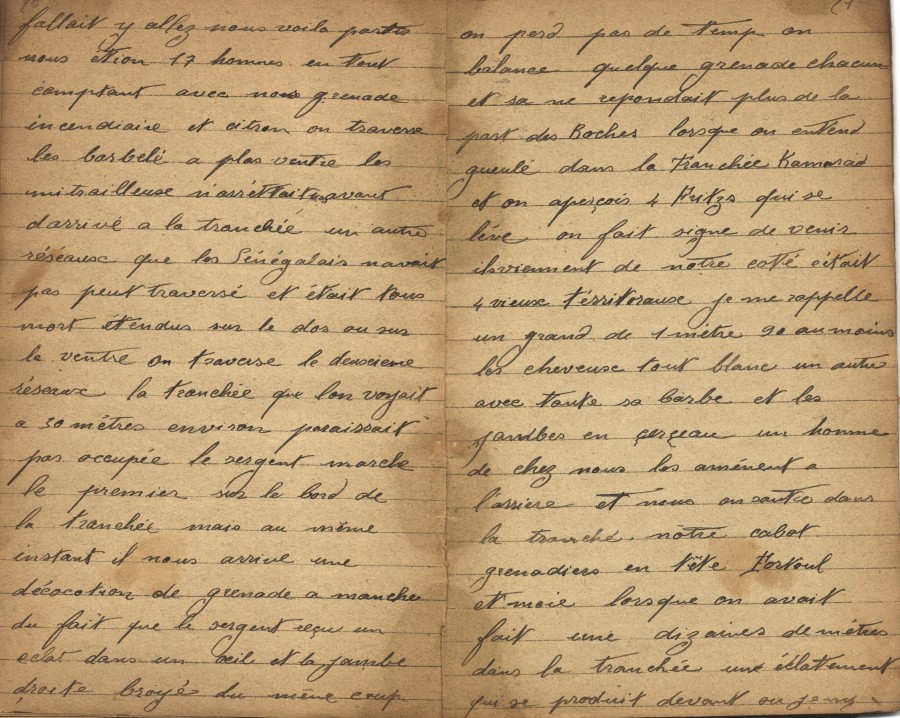 fallait y allez nous voila partis
nous étion 17 hommes en tout
comptant avec nos grenade
incendiaire et citron on traverse
les barbelé a plas ventre les
mitrailleuse n'arrettait avant
d'arrivé a la tranchéé un autre
réseaux que les Sénégalais navait
pas peut traversé et était tous
mort étendus sur le dos ou sur
le ventre on traverse le deuxieme
réseaux la tranchée que lon voyait
a 30 mètres environ paraissait
pas occupée le sergent marche
le premier sur le bord de
la tranchée mais au même
instant il nous arrive une
décocotion de grenade a manche
du fait que le sergent reçu un
eclat dans un œil et la jambe
droite broyé du même coup
21
on perd pas de temp on
balance quelque grenade chacun
et sa ne repondait plus de la
part des Boches lorsque on entend
gueulé dans la tranchée Kamarad
et on aperçois 4 Fritzs qui se
léve on fait signe de venir
ils viennent de notre coté c'était
4 vieux térritoraux je me rappelle
un grand de 1 mètre 90 au moins
les cheveux tout blanc un autre
avec toute sa barbe et les
jambes en çerçeau un homme
de chez nous les amènent a
l'arriere et nous on saute dans
la tranché. notre cabot
grenadiers en tête
et moie lorsque on avait
fait une dizaines de mètres
dans la tranchée une éclatement
qui se produit devant ou